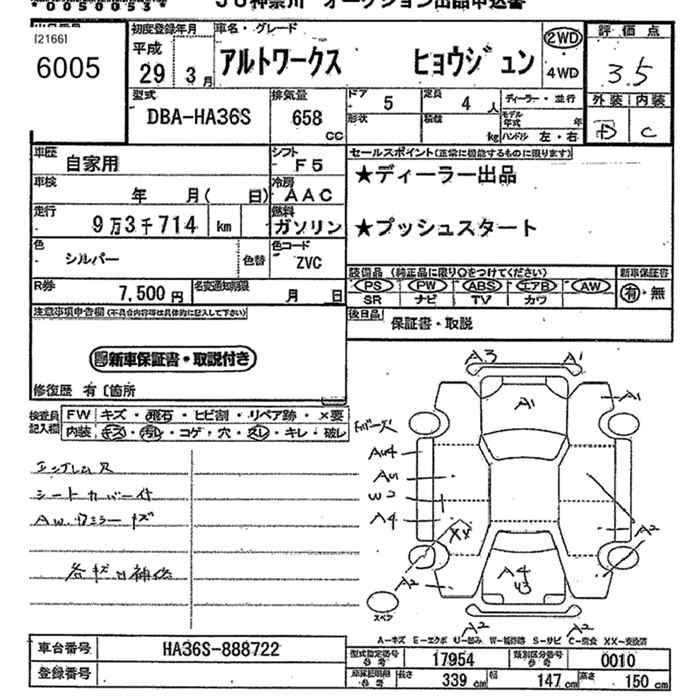 00500534
JU神奈川 オークション出品申込書
[2166]
6005
初度登録年月
平成
29 3月
車名・グレード
アルトワークス ヒョウジュン
2WD
4WD
評価点
3.5
外装 内装
D C
型式
DBA-HA36S
排気量
658 CC
ドア
5
定員
4 人
形状
積載
kg
ディーラー・並行
モデル年式 年
ハンドル 左・右
車歴
自家用
シフト
F5
車検
年 月( 日)
冷房
AAC
走行
9万3千714 km
燃料
ガソリン
セールスポイント(正常に機能するものに限ります)
★ディーラー出品
★プッシュスタート
色
シルバー
色替
色コード
ZVC
R券
7,500 円
名変通知期限
月 日
装備品 (純正品に限り○をつけてください)
PS PW ABS エアB AW
SR ナビ TV カワ
新車保証書
有・無
後日品
保証書・取説
注意事項申告欄(不具合内容等は具体的に記入して下さい)
新車保証書・取説付き
修復歴 有〔箇所
検査員記入欄
FW キズ・飛石・ヒビ割・リペア跡・×要
内装 キズ・汚れ・コゲ・穴・スレ・キレ・破レ
シートカバー付
各キズ凹補修
A3 A1
A1 A1
A4
W2
A4
XX
A2
A2
A4
A2 A2
スペア
A-キズ E-エクボ U-凹み W-補修跡 S-サビ C-腐食 XX-交換済
車台番号
HA36S-888722
登録番号
型式指定番号
参考
17954
類別区分番号
参考
0010
長さ
339 cm
幅
147 cm
高さ
150 cm